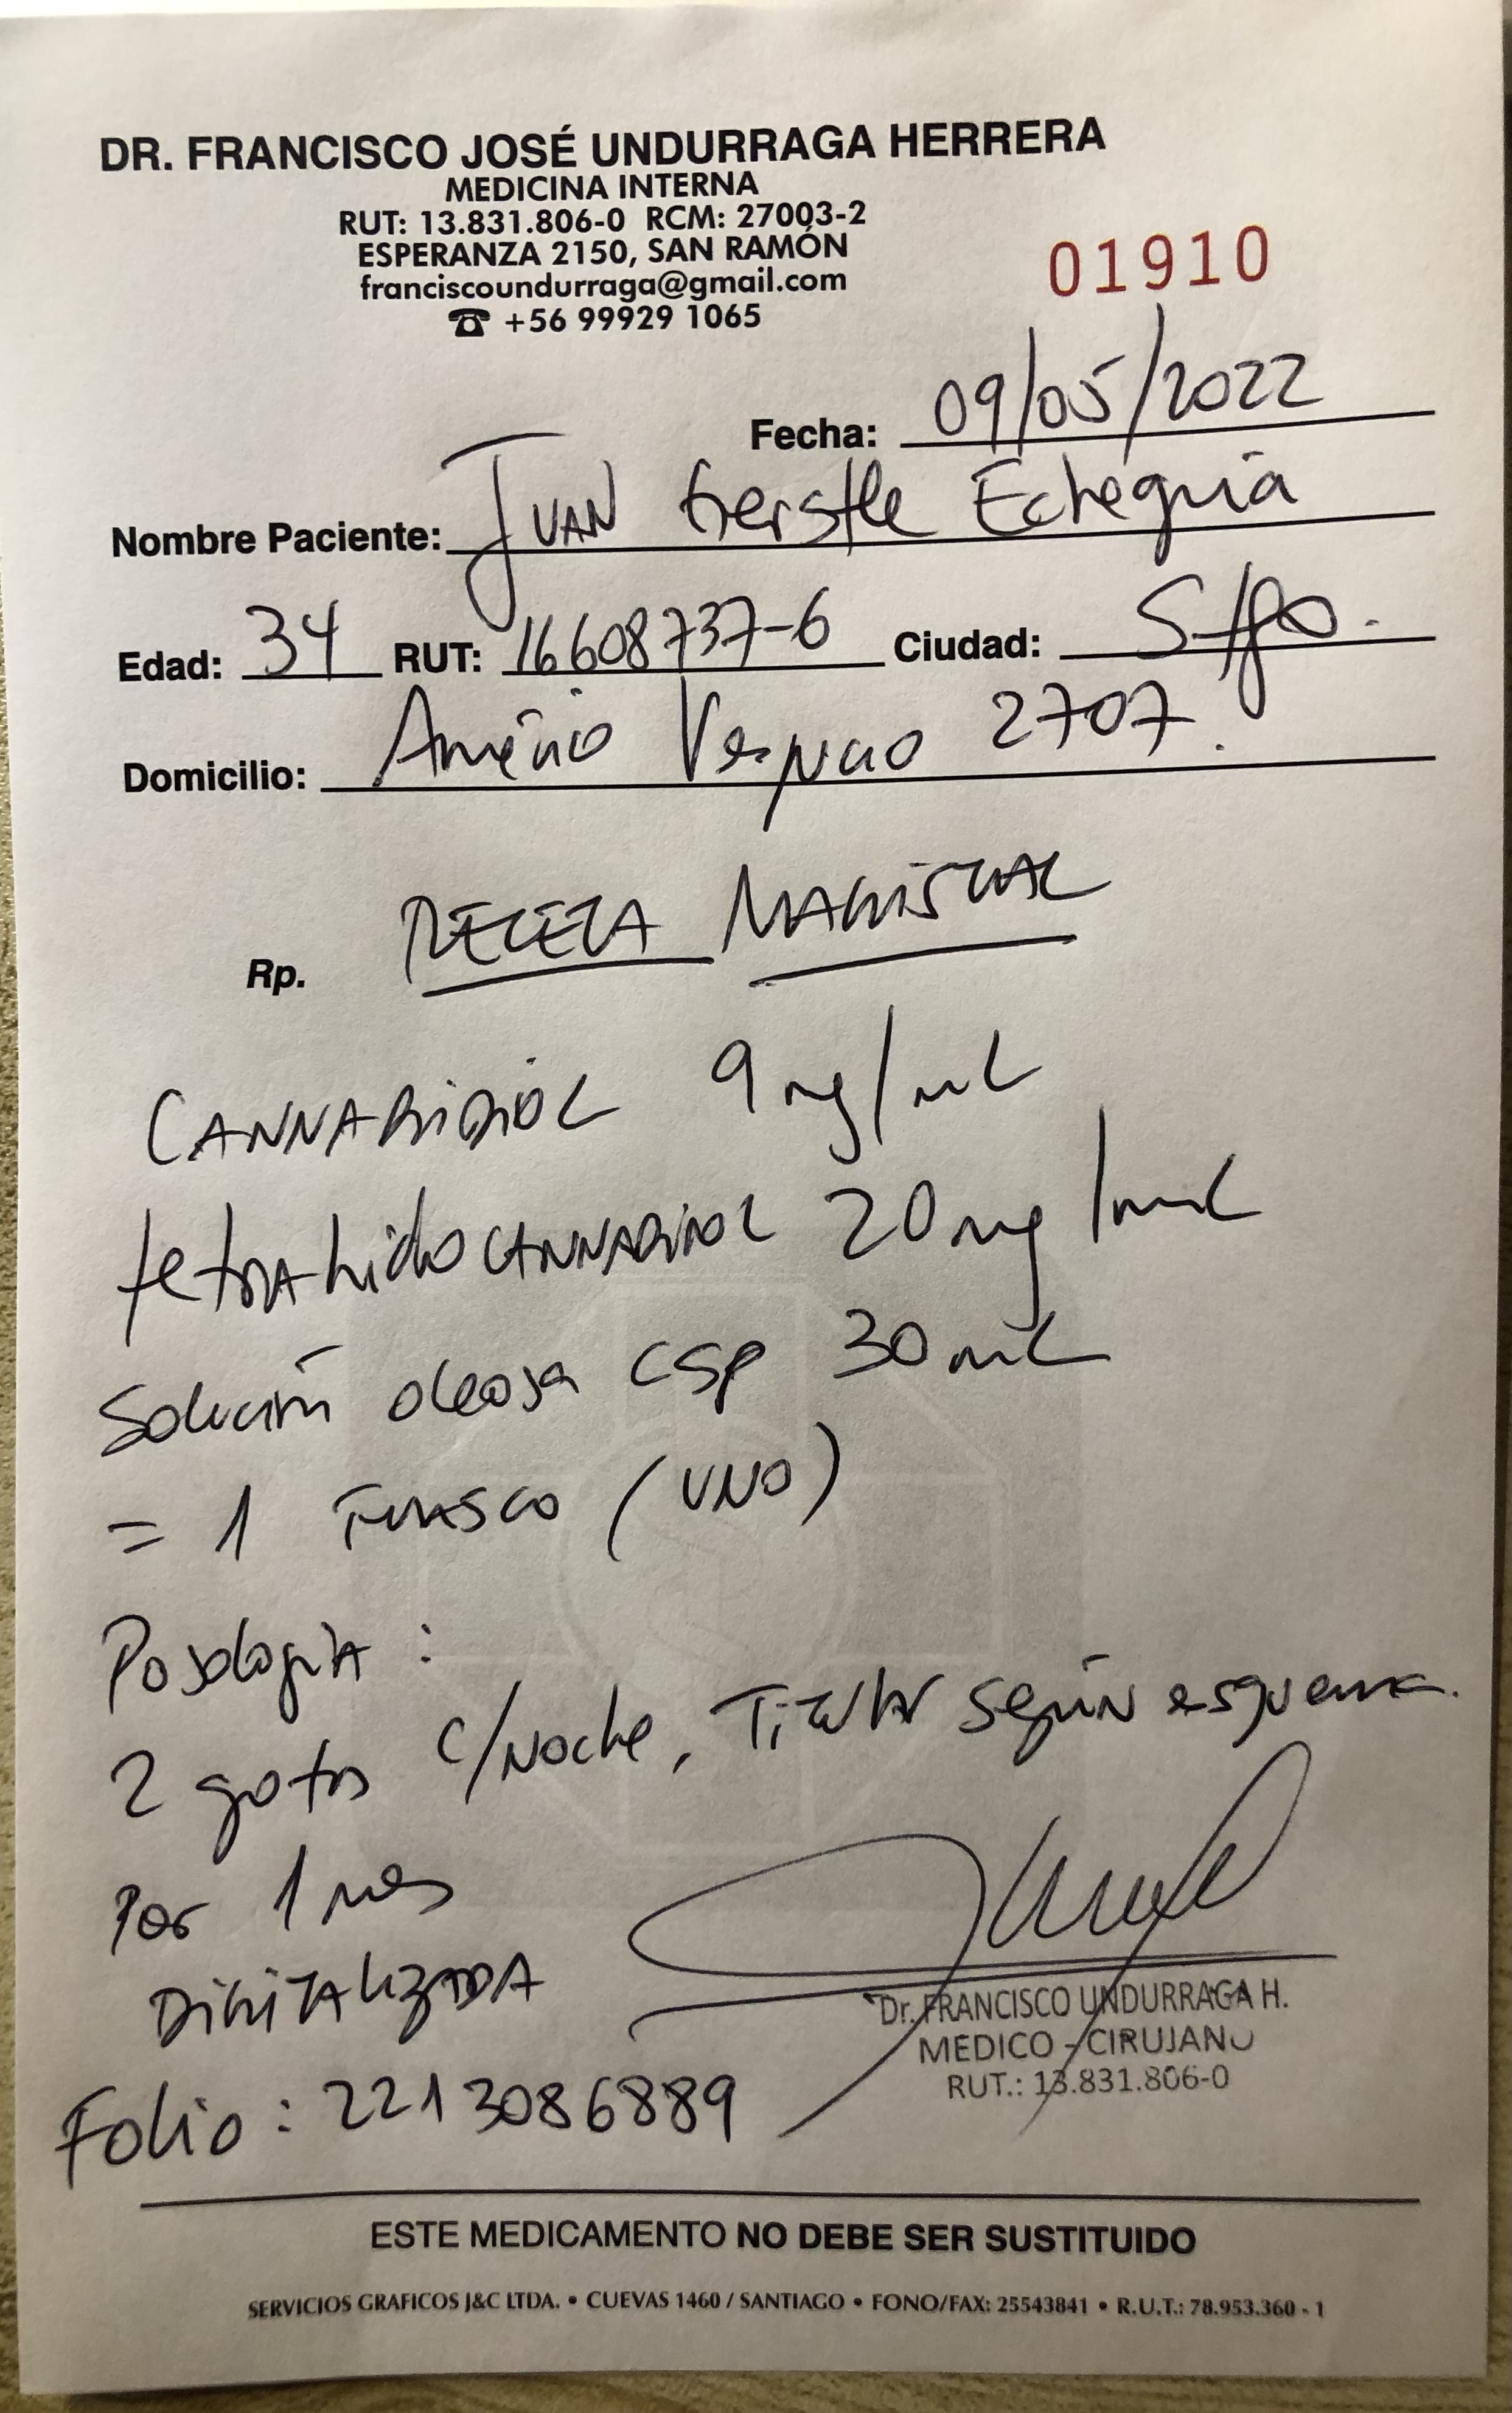 DR. FRANCISCO JOSÉ UNDURRAGA HERRERA
MEDICINA INTERNA
RUT: 13.831.806-0 RCM: 27003-2
ESPERANZA 2150, SAN RAMÓN
franciscoundurraga@gmail.com
☎ +56 99929 1065
01910
Fecha: 09/05/2022
Nombre Paciente: JUAN Gerstle Echeguia
Edad: 34 RUT: 16608737-6 Ciudad: Stgo.
Domicilio: Américo Vespucio 2707.
Rp. RECETA MAGISTRAL
CANNABIDIOL 9 mg/mL
tetrahidroCANNABINOL 20 mg/mL
Solución oleosa CSP 30 mL
= 1 FRASCO (UNO)
Posología :
2 gotas c/Noche, TITULAR según esquema.
Por 1 mes
DIGITALIZADA
Folio : 2213086889
Dr. FRANCISCO UNDURRAGA H.
MEDICO - CIRUJANO
RUT.: 13.831.806-0
ESTE MEDICAMENTO NO DEBE SER SUSTITUIDO
SERVICIOS GRAFICOS J&C LTDA. • CUEVAS 1460 / SANTIAGO • FONO/FAX: 25543841 • R.U.T.: 78.953.360 - 1